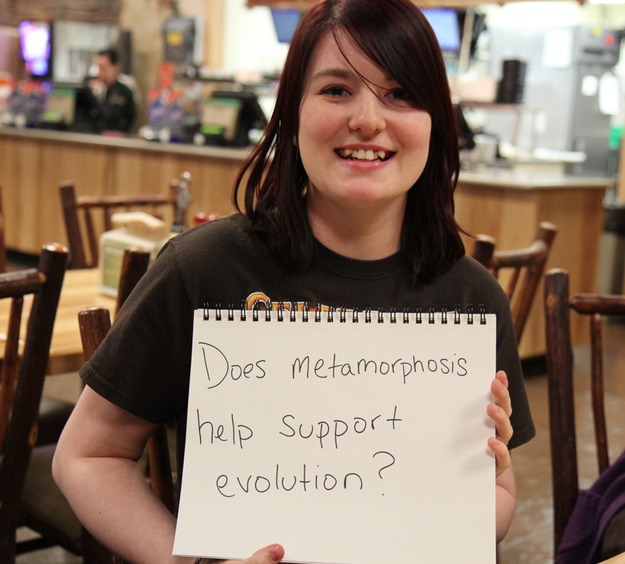 Does metamorphosis
help support
evolution?